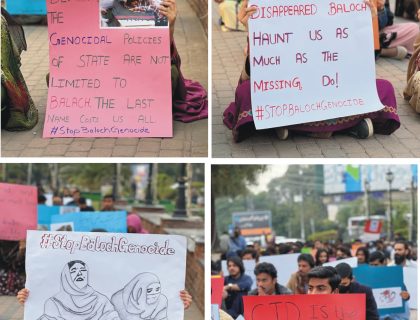 THE
GENOCIDAL POLICIES
OF STATE ARE NOT
LIMITED TO
BALACH. THE LAST
NAME COSTS US ALL
#StopBalochGenocide
DISAPPEARED BALOCH
HAUNT US AS
MUCH AS THE
MISSING DO!
#STOPBALOCHGENOCIDE
#StopBalochGenocide
CTD is the